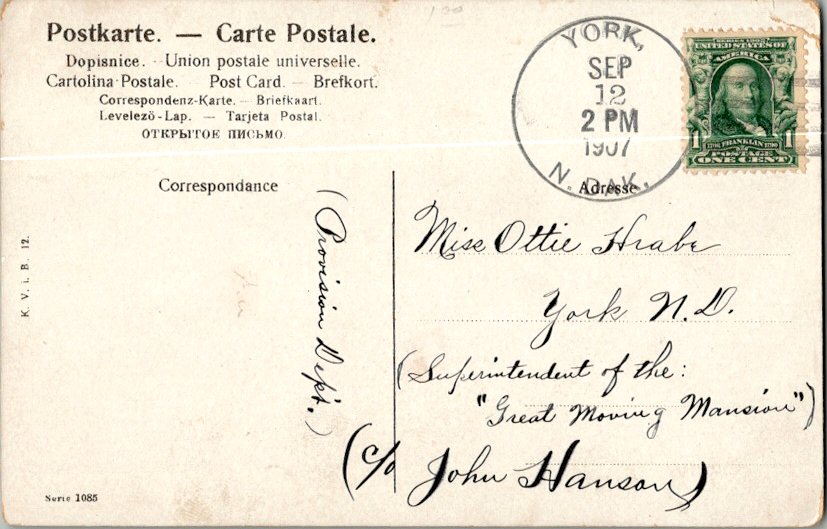 Postkarte. — Carte Postale.
Dopisnice. - Union postale universelle.
Cartolina Postale. — Post Card. — Brefkort.
Correspondenz-Karte. — Briefkaart.
Levelező-Lap. — Tarjeta Postal.
ОТКРЫТОЕ ПИСЬМО.
YORK,
SEP
12
2 PM
1907
N. DAK.
SERIES 1902
UNITED STATES OF
AMERICA
1706 FRANKLIN 1790
1 1
POSTAGE
ONE CENT
Correspondance
Adresse
Miss Ottie Hrabe
York N.D.
(Superintendent of the:
"Great Moving Mansion")
(c/o John Hanson)
(Provision Dep't.)
K. V. i. B. 12.
Serie 1085